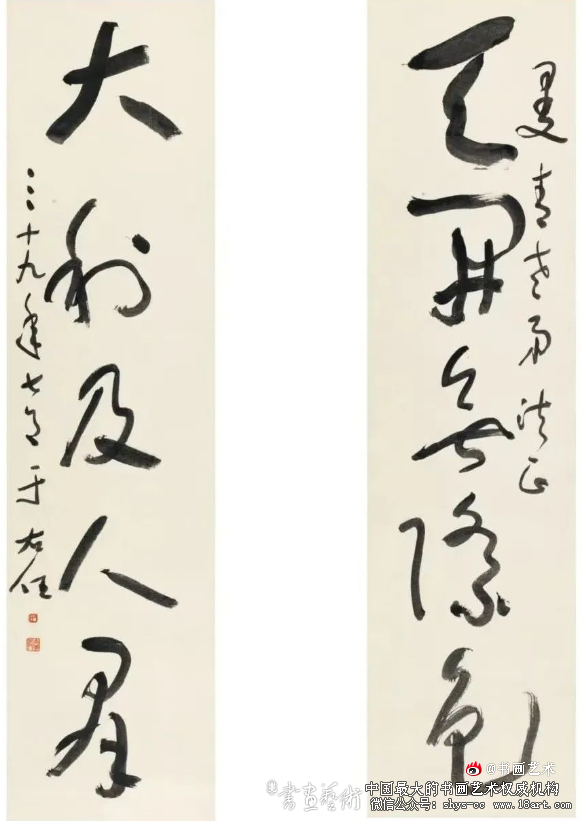 天開無際色
曼青老弟法正
大利及人群
三十九年七 于右任
@书画艺术
書画藝術
中国最大的书画艺术权威机构
微信公众号: shys-cc www.18art.com